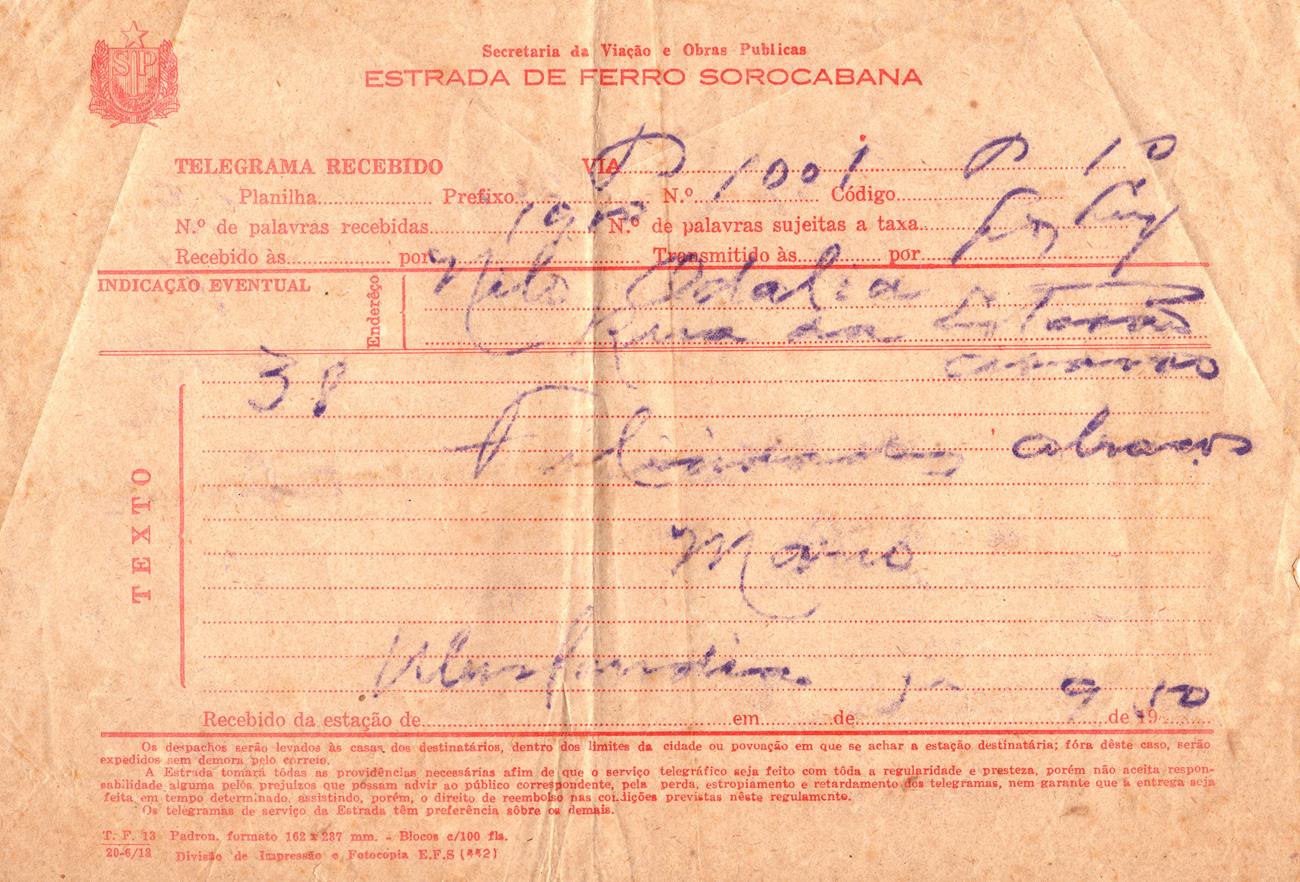 SP
Secretaria da Viação e Obras Publicas
ESTRADA DE FERRO SOROCABANA
TELEGRAMA RECEBIDO VIA
P 1001 P 10
Planilha Prefixo N.º Código
N.º de palavras recebidas N.º de palavras sujeitas a taxa
Recebido às por Transmitido às por
INDICAÇÃO EVENTUAL
Endereço
Nilo Odalia
Rua da
38
TEXTO
Felicidades abraços
Mario
Uberlandia 9 50
Recebido da estação de em de de 19
Os despachos serão levados às casas dos destinatários, dentro dos limites da cidade ou povoação em que se achar a estação destinatária; fóra dêste caso, serão
expedidos sem demora pelo correio.
A Estrada tomará tôdas as providências necessárias afim de que o serviço telegráfico seja feito com tôda a regularidade e presteza, porém não aceita respon-
sabilidade alguma pelos prejuizos que possam advir ao público correspondente, pela perda, estropiamento e retardamento dos telegramas, nem garante que a entrega seja
feita em tempo determinado, assistindo, porém, o direito de reembolso nas condições previstas nêste regulamento.
Os telegramas de serviço da Estrada têm preferência sôbre os demais.
T. F. 13 Padron. formato 162 x 237 mm. - Blocos c/100 fls.
20-6/12 Divisão de Impressão e Fotocópia E.F.S (442)